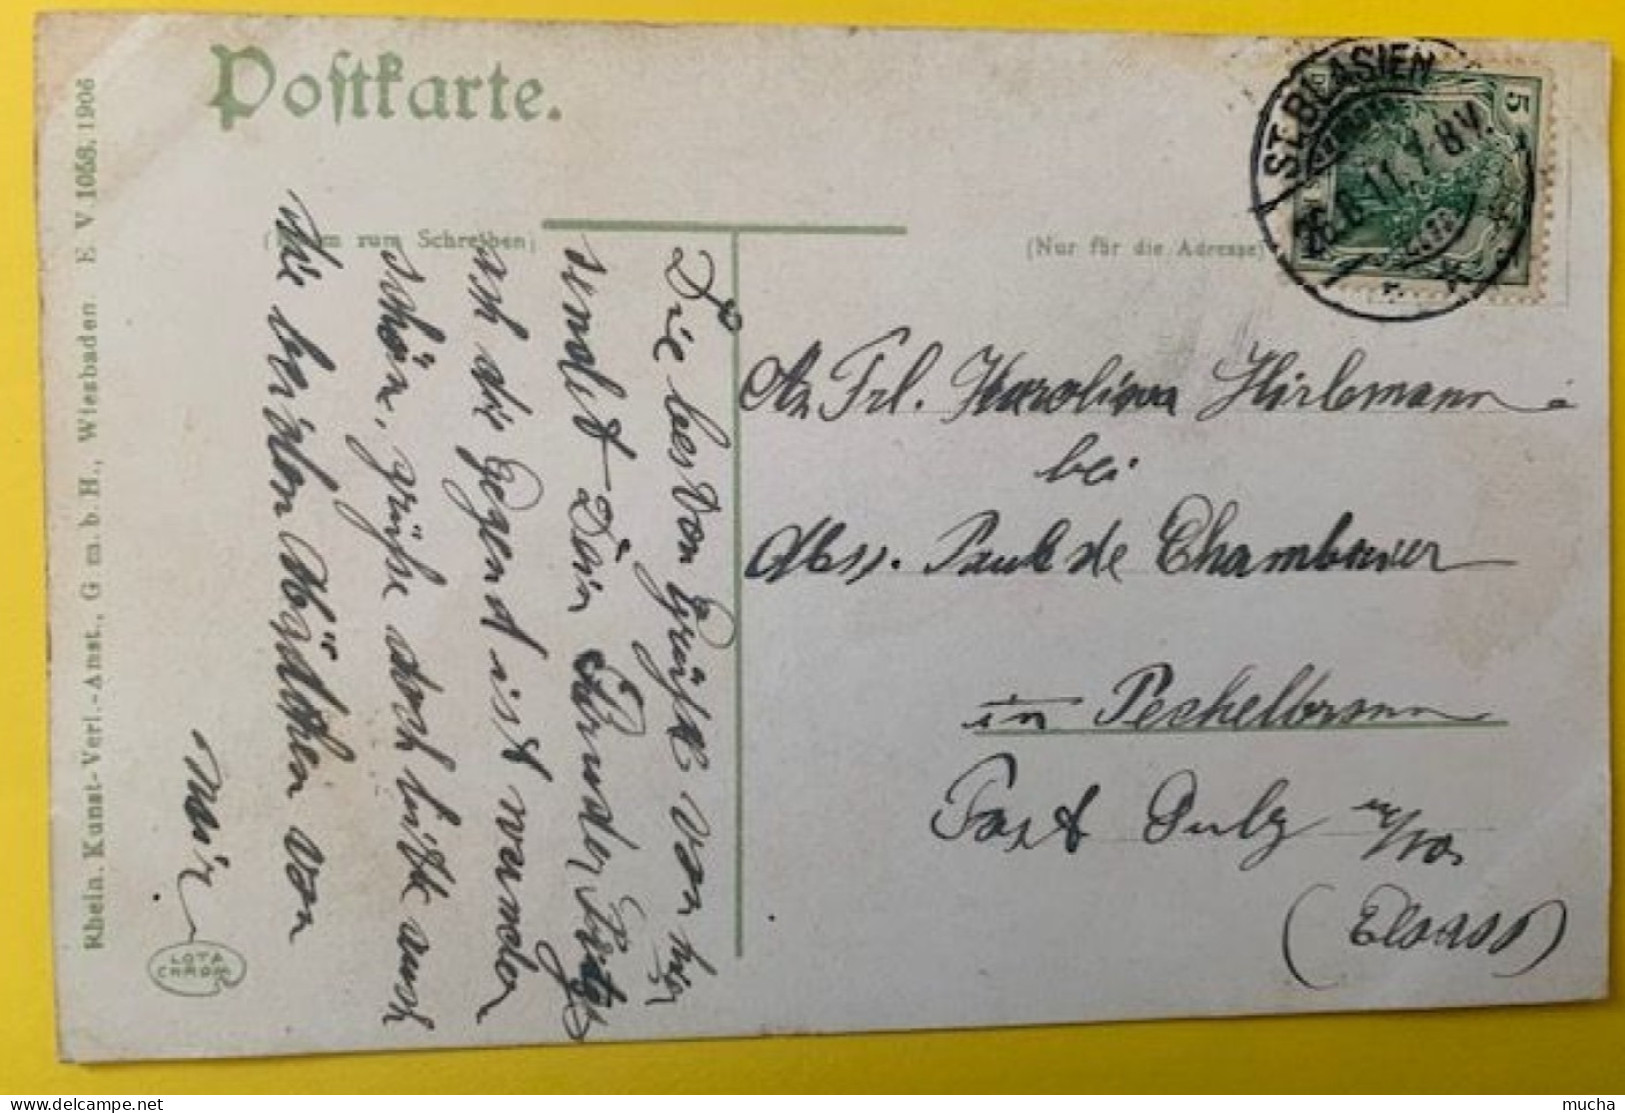 Postkarte.
(Raum zum Schreiben)
(Nur für die Adresse)
ST. BLASIEN
26.6 11.7-8V.
5
Rhein. Kunst-Verl.-Anst., G m. b. H., Wiesbaden. E. V 1058. 1906
LOTA
CHROM
Die besten Grüße von hier
sendet Dir Bruder
ach die Gegend ist wunder
schön, grüße doch bitte auch
die beiden von
mir
An Frl. Karolina Hirlemann
bei
Mss. Paul de Chambrier
in Pechelbronn
Post Sulz u/W
(Elsass)
mucha